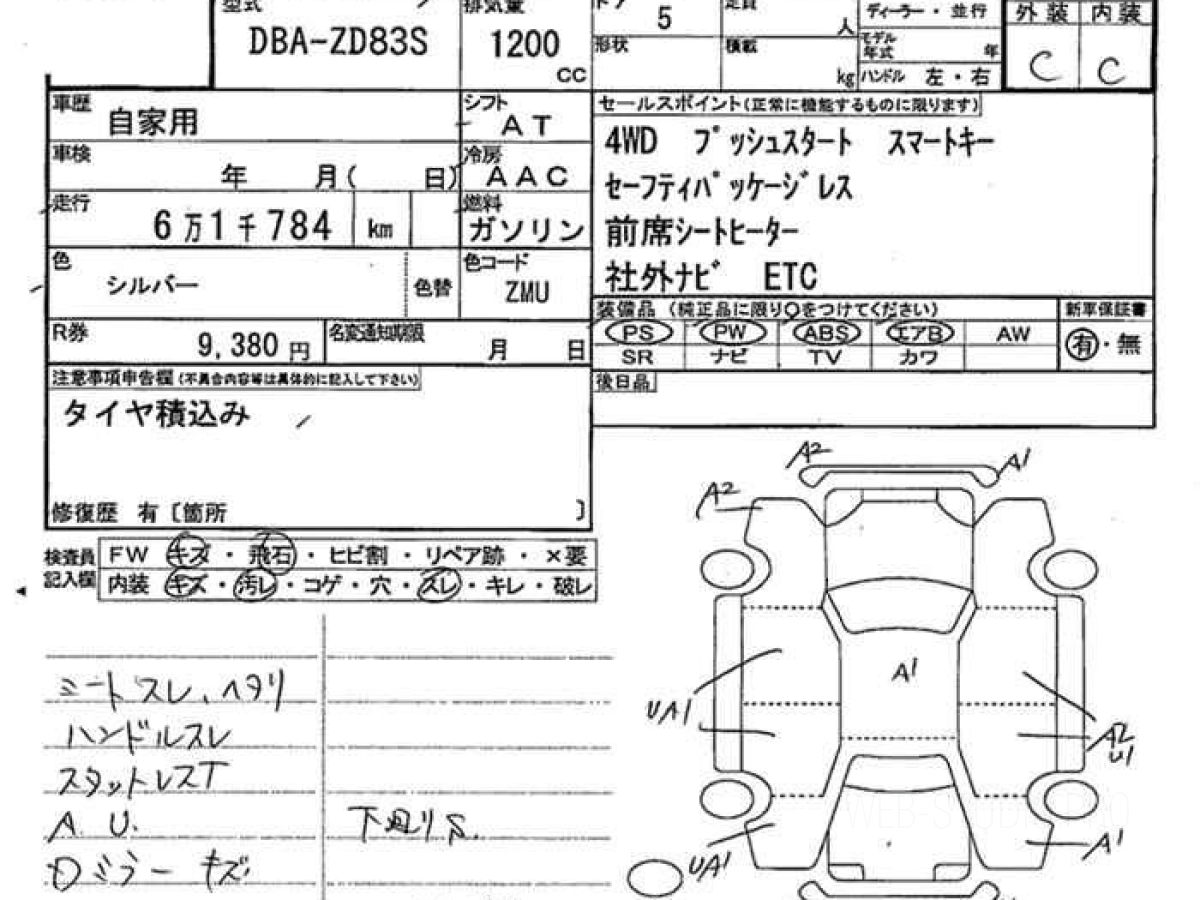 型式 排気量 ドア 定員 ディーラー・並行 外装 内装
DBA-ZD83S 1200 CC 5 人
形状 積載 kg モデル年式 年 C C
ハンドル 左・右
車歴 自家用 シフト AT セールスポイント(正常に機能するものに限ります)
車検 年 月( 日) 冷房 AAC 4WD プッシュスタート スマートキー
走行 6万1千784 km 燃料 ガソリン セーフティパッケージレス
前席シートヒーター
色 シルバー 色替 色コード ZMU 社外ナビ ETC
装備品 (純正品に限り○をつけてください) 新車保証書
R券 9,380円 名変通知期限 月 日 PS PW ABS エアB AW 有・無
SR ナビ TV カワ
注意事項申告欄(不具合内容等は具体的に記入して下さい) 後日品
タイヤ積込み
修復歴 有〔箇所 〕
検査員記入欄 FW キズ・飛石・ヒビ割・リペア跡・×要
内装 キズ・汚レ・コゲ・穴・スレ・キレ・破レ
シートスレ、ヘタリ
ハンドルスレ
スタットレスT
A.U. 下廻りS.
ミラーキズ
A2 A1
A2
A1
UA1 A2
U1
UA1 A1